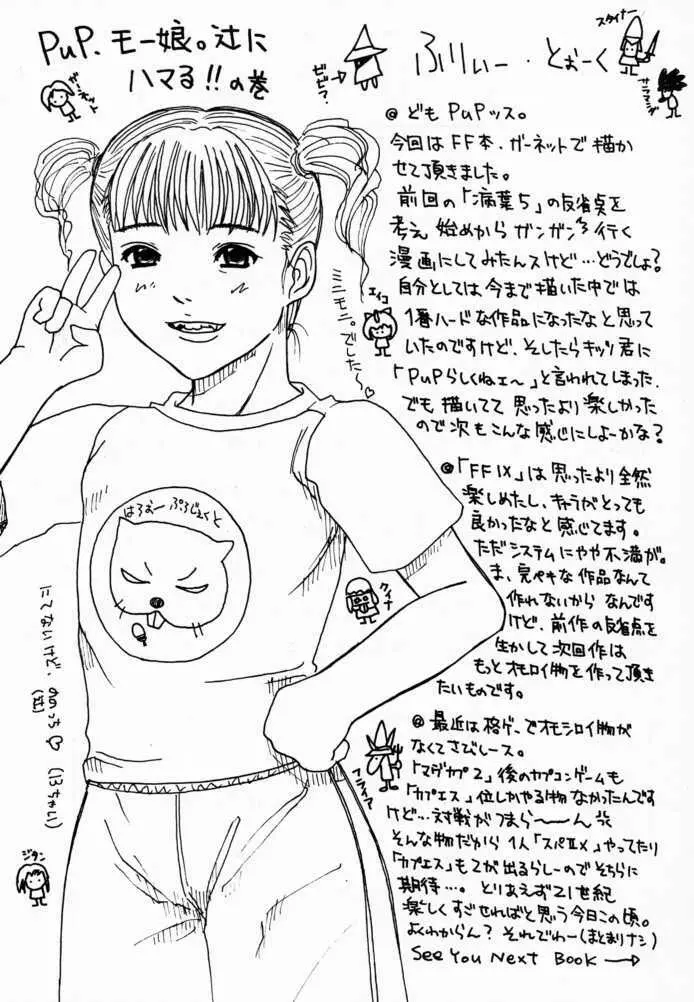 PuP. モー娘。辻に
ハマる!!の巻
ビビ?
ふりぃー・とぉーく
スタイナー
サラマンダ
@ どもPuPッス。
今回はFF本、ガーネットで描か
せて頂きました。
前回の「病葉5」の反省点を
考え始めからガンガン行く
漫画にしてみたんスけど…どうでしょ?
自分としては今まで描いた中では
1番ハードな作品になったなと思って
いたのですけど、そしたらキッソ君に
「PuPらしくねェ〜」と言われてしまった、
でも描いてて思ったより楽しかった
ので次もこんな感じにしよーかな?
エイコ
ミニモニ。でした〜♡
@「FFIX」は思ったより全然
楽しめたし、キャラがとっても
良かったなと感じてます。
ただシステムにやや不満が。
ま、完ペキな作品なんて
作れないからなんです
けど、前作の反省点を
生かして次回作は
もっとオモロイ物を作って頂き
たいものです。
クイナ
はろおーぷろじぇくと
にてないけど、のの っち♡
(辻)
(13ちゃい)
@ 最近は格ゲーでオモシロイ物が
なくてさびしース。
「マヴカプ2」後のカプコンゲームも
「カプエス」位しかやる物なかったんです
けど…対戦がつまら〜〜ん
そんな物だから1人「スパIIX」やってたり
「カプエス」も2が出るらしーのでそちらに
期待…。とりあえず21世紀
楽しくすごせればと思う今日この頃。
よくわからん?それでわー(まとまりナシ)
See You Next Book →
フライア
ジタン